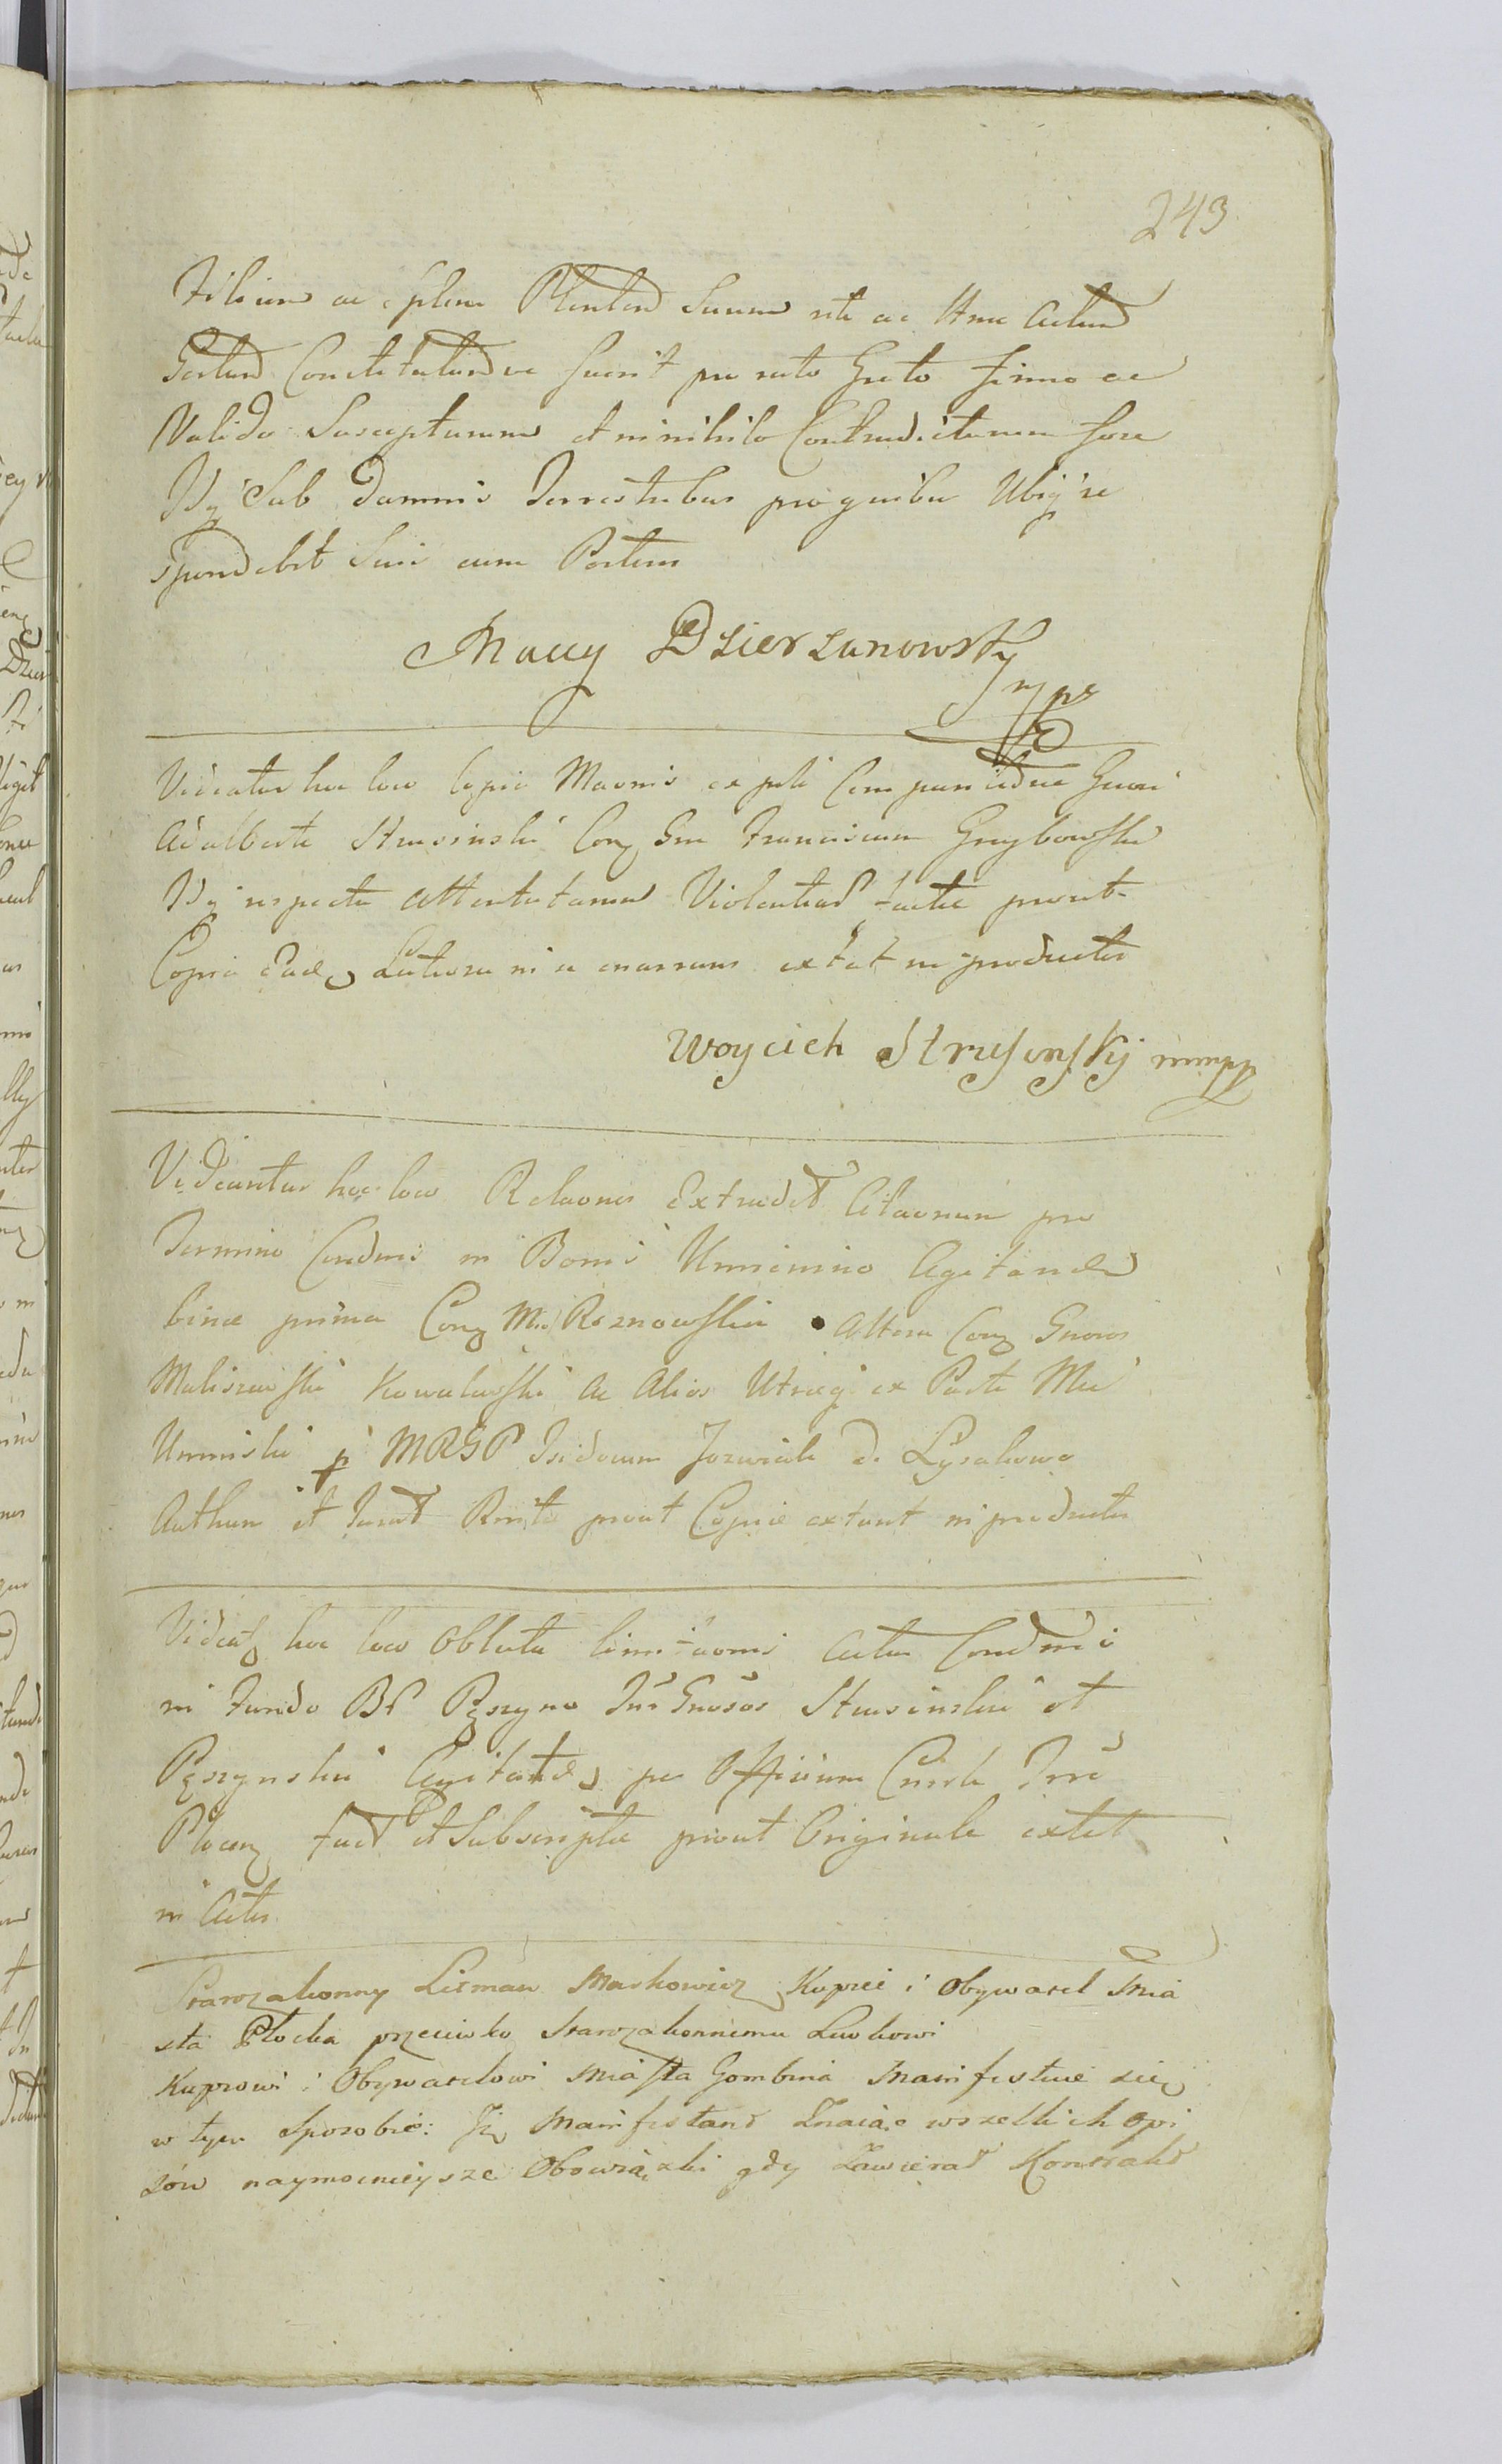 243
Filium ac plen Plenten Suum rite ac Hme Actum
Gestum Constitutumve fuerit pro rato Grato firmo ac
Valido Suscepturum et in nihilo Contradicturum fore
Idq Sub damnis Terrestribus pro quibus Ubiq re
spondebit Suis cum Poteris
Macey Dzierzanowsky
mp
Videatur hoc loco Copia Maonis ex parte Comparitue Gnosi
Adalberti Strusinski Conq Gnm Franciscum Grzybowski
Idq respectu Attentatarum Violentiad factae prout
Copia Ead Latiora in se enarrans extat in productis
Woyciech Strusinsky mmpp
Videantur hoc loco Relaones Extradit Citaonum pro
Termino Condnis in Bonis Umnienino Agitanda
binae prima Conq M. Roznowski Altera Conq Gnosos
Maliszewski Kowalewski Ac Alios Utraq ex Parte Mci
Umniski p MRGP Isidorum Jozwiak de Lysakowo
Authum et Jurat Rnita prout Copiae extant in productis
Videatq hoc loco Oblata limitaonis Actus Condnis
in Fundo BP Pęszyno Int Gnosos Strusinski et
Pęszynski Agitate per Officium Castr Trre
Plocen fact et Subscripta prout Originale extat
in Actis
Starozakonny Lisman Markowicz Kupiec i Obywatel Mia
sta Płocka przeciwko Starozakonnemu Lewkowi
Kupcowi i Obywatelowi Miasta Gombina Manifestuie się
w tym Sposobie: Iż Manifestant Znaiąc wszelkich opi
sów naymocnieysze Obowiązki gdy Zawierał Kontrakt